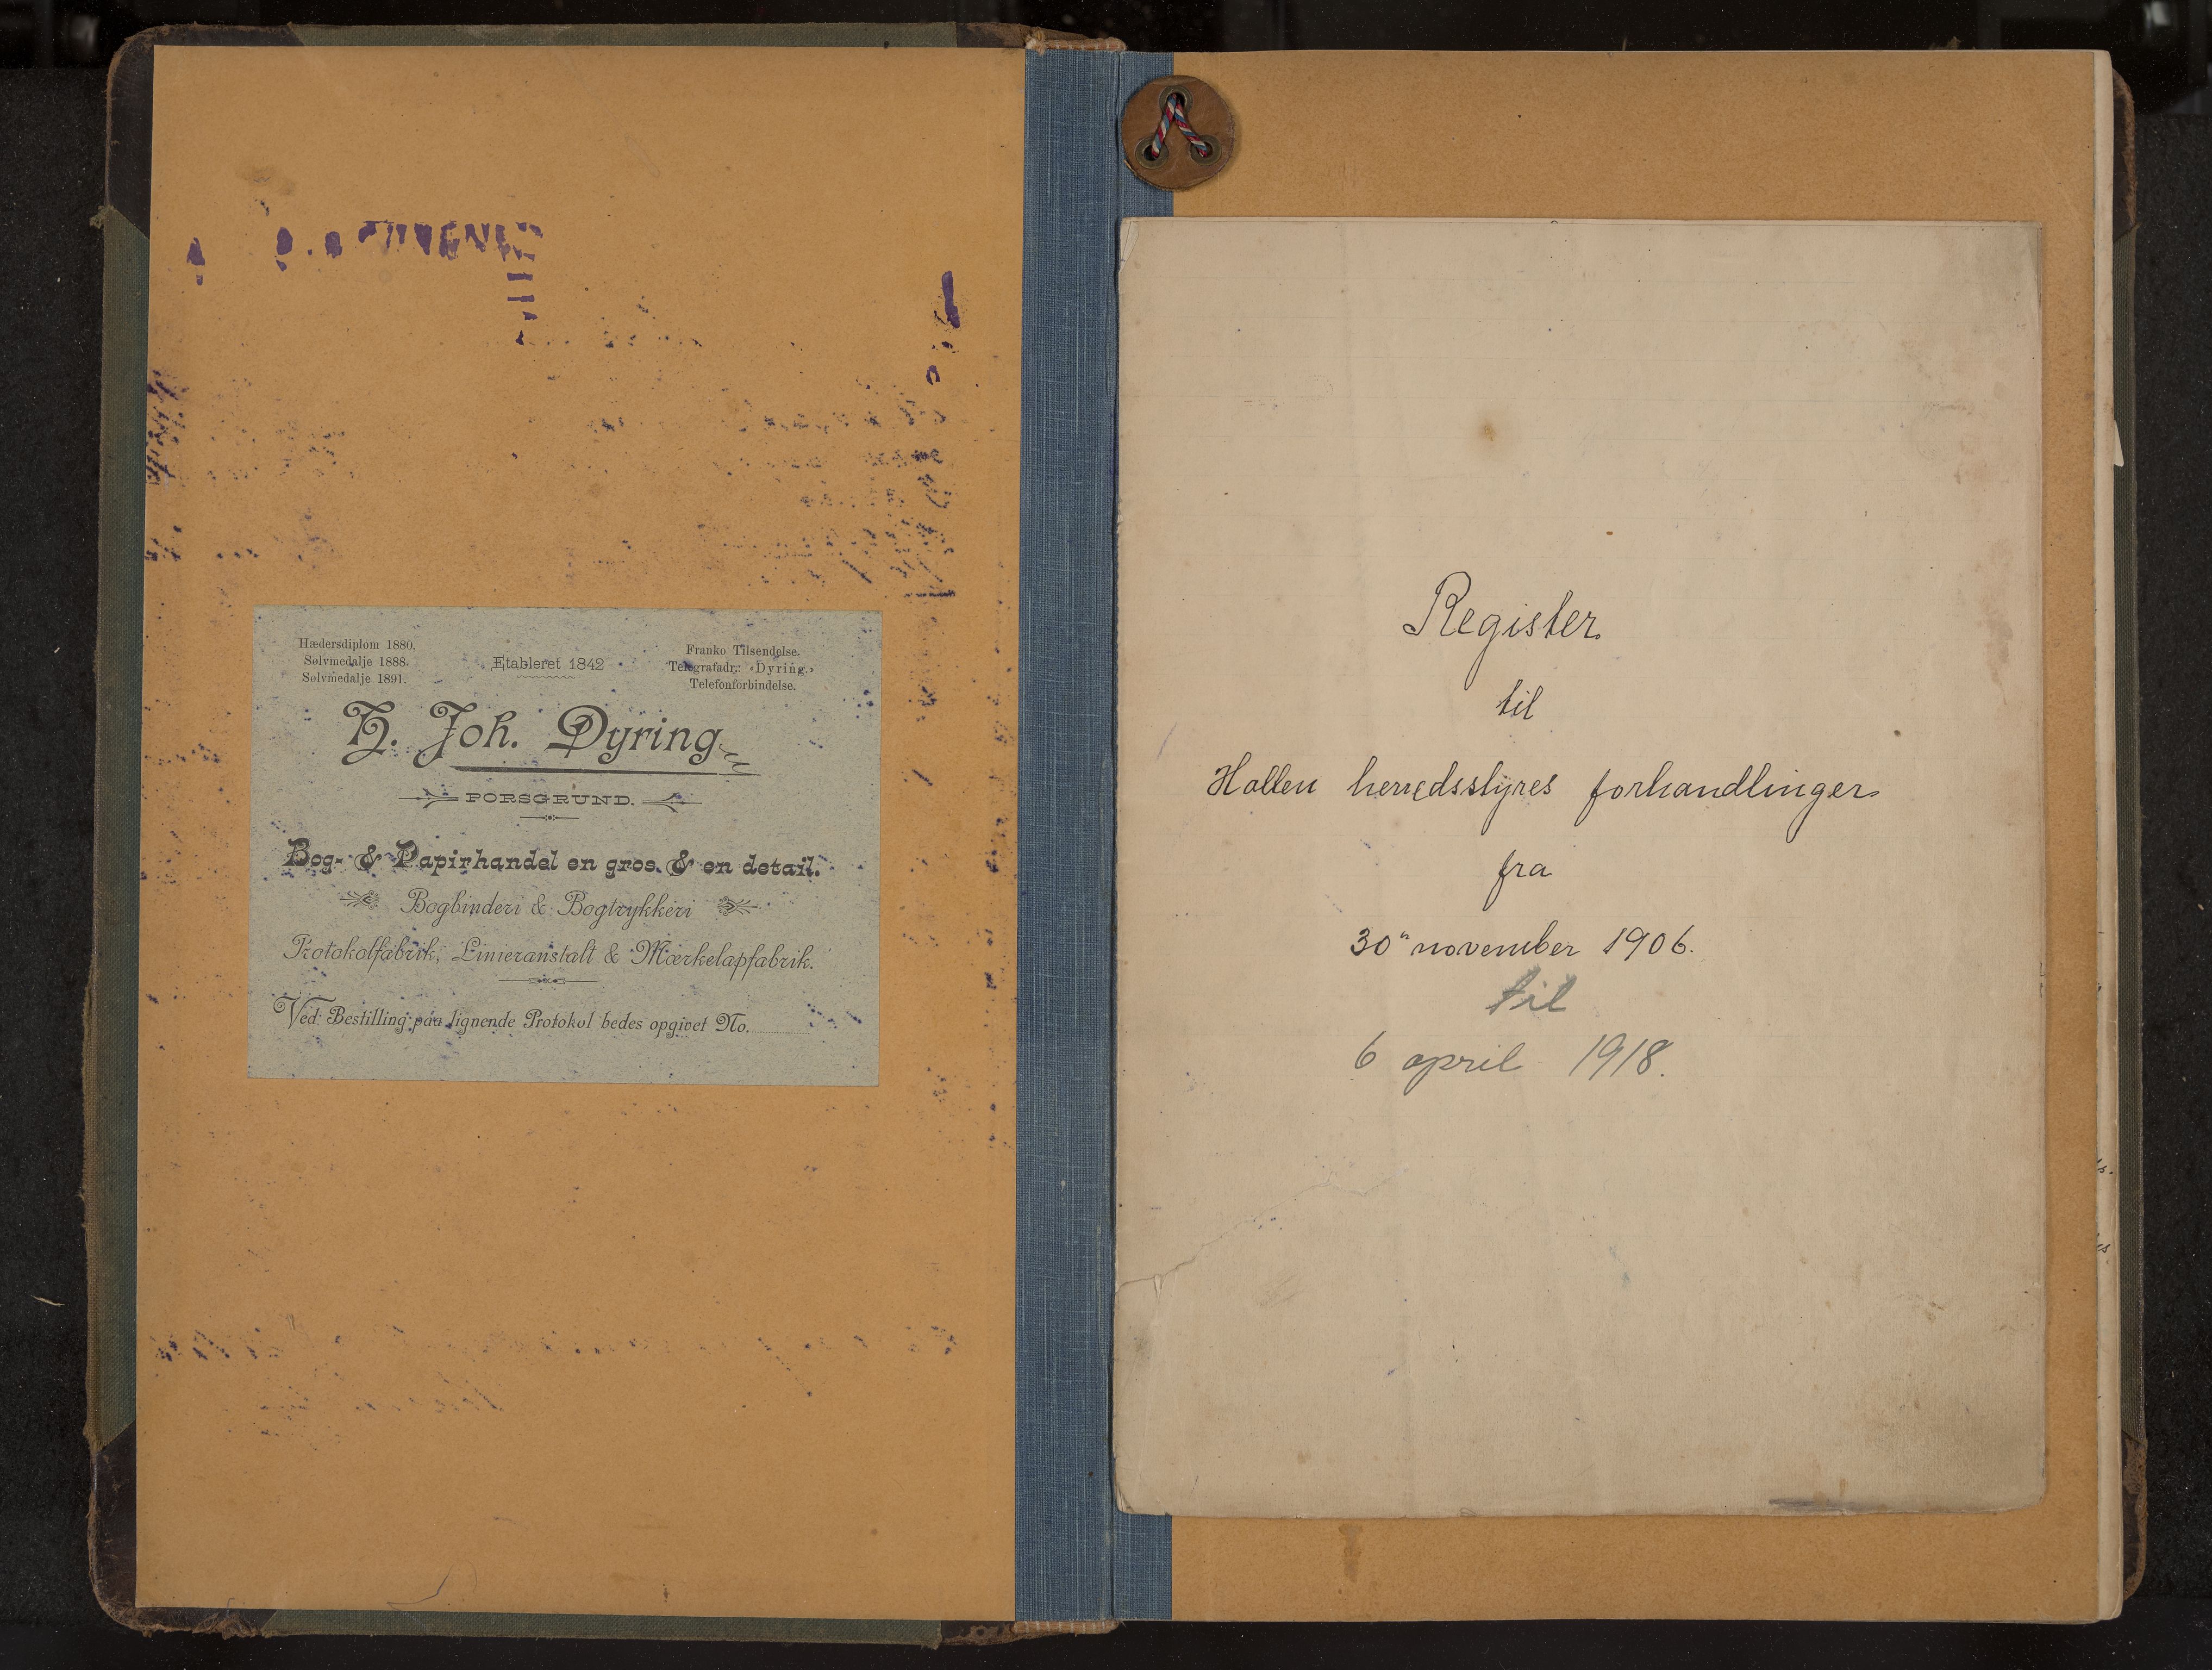 Hædersdiplom 1880.
Sølvmedalje 1888.
Sølvmedalje 1891.
Etableret 1842
Franko Tilsendelse.
Telegrafadr.: «Dyring.»
Telefonforbindelse.
H. Joh. Dyring
PORSGRUND.
Bog- & Papirhandel en gros & en detail.
Bogbinderi & Bogtrykkeri
Protokolfabrik, Linieranstalt & Mærkelapfabrik.
Ved Bestilling paa lignende Protokol bedes opgivet No.
Register
til
Hollen herredsstyres forhandlinger
fra
30" november 1906.
til
6 april 1918.